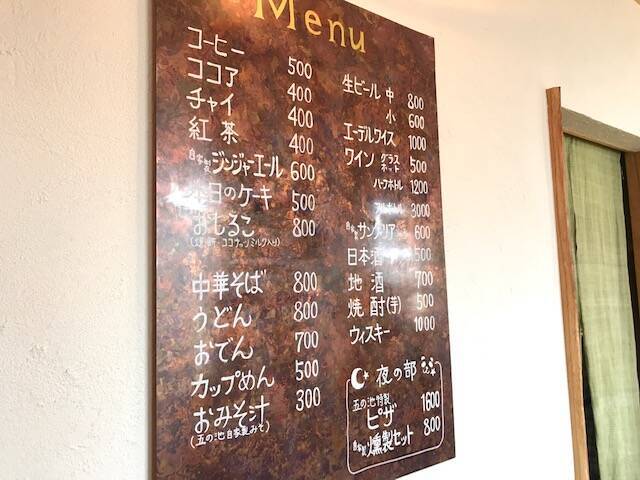 Menu
コーヒー 500
ココア 400
チャイ 400
紅茶 400
自家製ジンジャーエール 600
本日のケーキ 500
おしるこ 800
ココナッツミルク入り)
中華そば 800
うどん 800
おでん 700
カップめん 500
おみそ汁 300
(五の池自家製みそ)
生ビール 中 800
小 600
エーデルワイス 1000
ワイン グラス 500
ホット
ハーフボトル 1200
フルボトル 3000
自家製サングリア 600
日本酒 500
地酒 700
焼酎(芋) 500
ウィスキー 1000
夜の部
五の池特製
ピザ 1600
自家製燻製セット 800